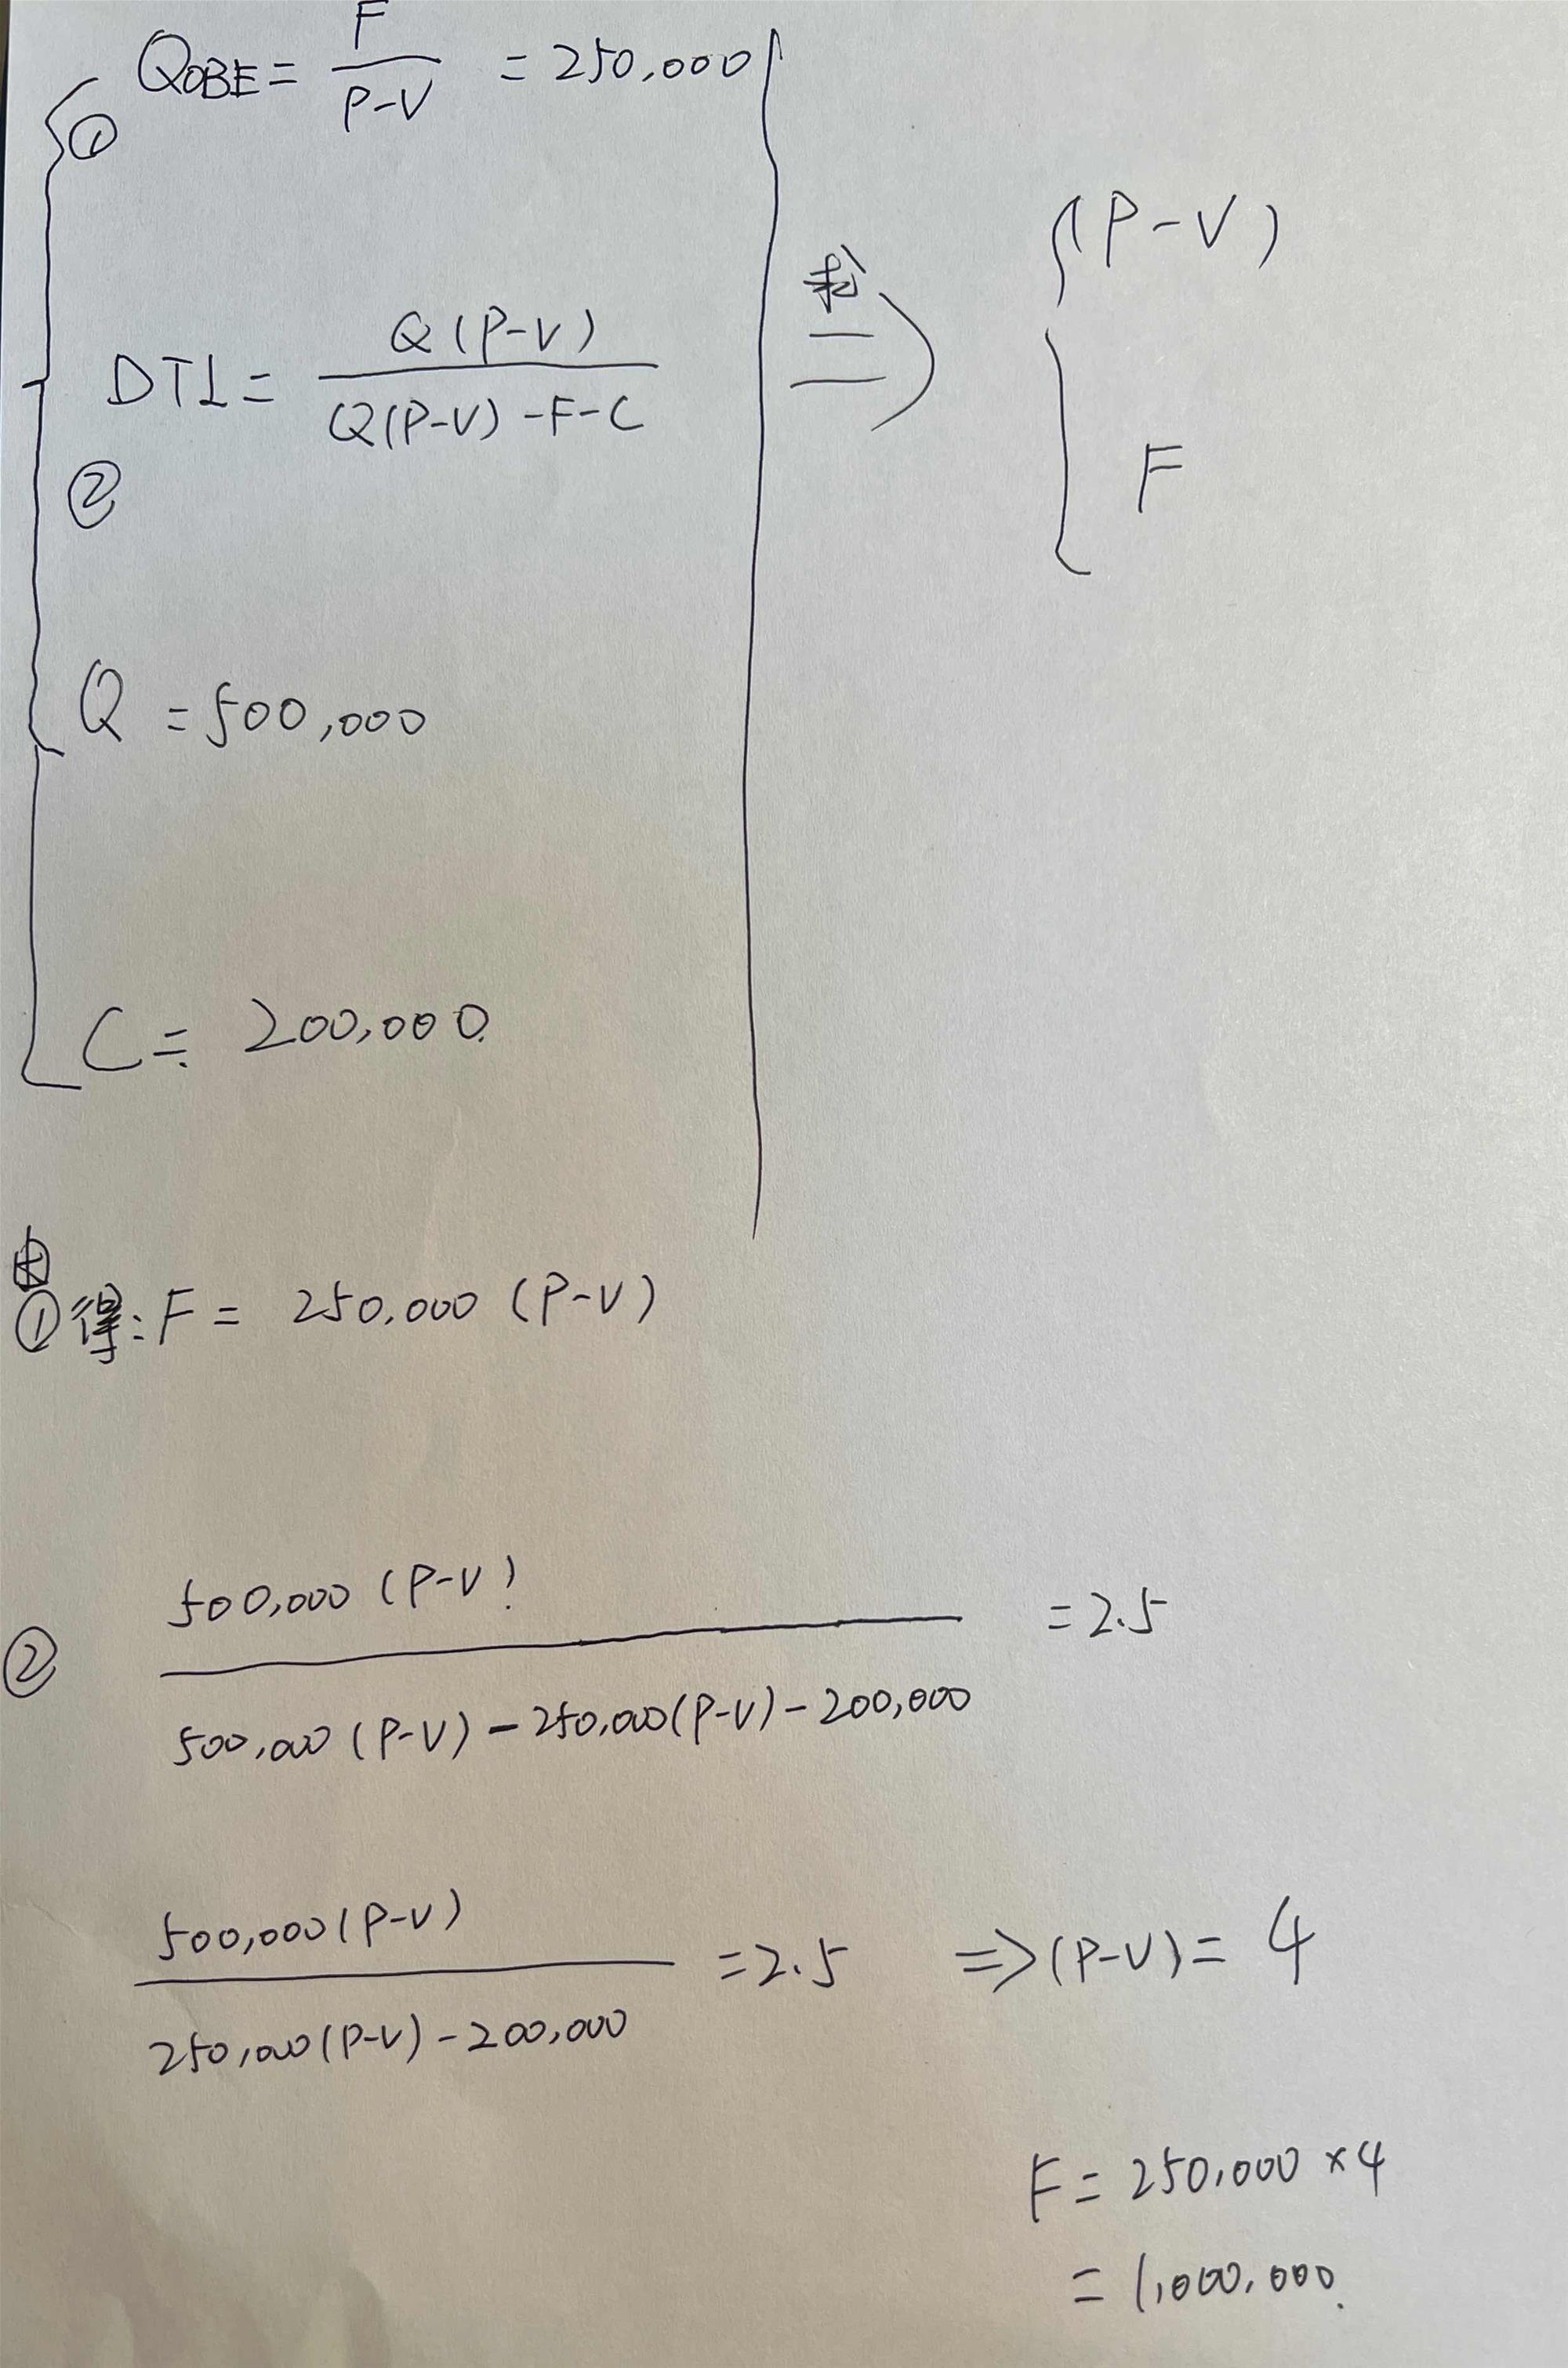 ① QOBE = F/(P-V) = 250,000
求 ⇒
(P-V)
F
② DTL = Q(P-V)/(Q(P-V)-F-C)
Q = 500,000
C = 200,000.
由
①得: F = 250,000 (P-V)
② 500,000 (P-V)/(500,000 (P-V) - 250,000(P-V) - 200,000) = 2.5
500,000(P-V)/(250,000(P-V) - 200,000) = 2.5 ⇒ (P-V) = 4
F = 250,000 × 4
= 1,000,000.